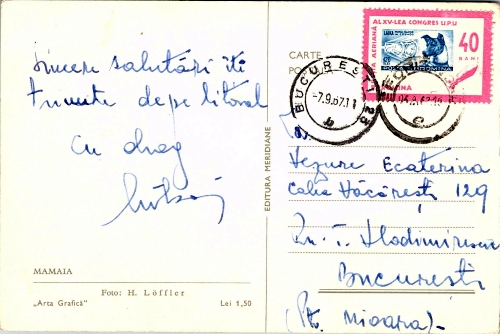 Sincere salutări îți
trimite depe litoral
cu drag
MAMAIA
Foto: H. Löffler
„Arta Grafică”
Lei 1,50
EDITURA MERIDIANE
CARTE
AL XV-LEA CONGRES U.P.U
POSTA AERIANĂ
40
BANI
LAIKA
BUCUREȘTI
-7.9.67.11
Ecaterina
Calea Văcărești 129
Vladimirescu
București
(Pt. Mioara)-